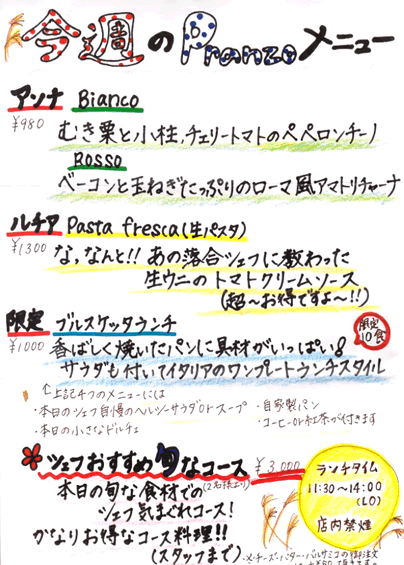 今週のPranzoメニュー
アンナ Bianco
¥980
むき栗と小柱、チェリートマトのペペロンチーノ
Rosso
ベーコンと玉ねぎたっぷりのローマ風アマトリチャーナ
ルチア Pasta fresca(生パスタ)
¥1300
な,なんと!! あの落合シェフに教わった
生ウニのトマトクリームソース
(超〜お得ですよ〜!!)
限定 ブルスケッタランチ
限定10食
¥1000
香ばしく焼いたパンに具材がいっぱい♪
サラダも付いてイタリアのワンプレートランチスタイル
上記4つのメニューには
・本日のシェフ自慢のヘルシーサラダorスープ
・自家製パン
・本日の小さなドルチェ
・コーヒーor紅茶が付きます
シェフおすすめ旬なコース ¥3,000
(2名様より)
本日の旬な食材での
シェフ気まぐれコース!
かなりお得なコース料理!!
(スタッフまで)
ランチタイム
11:30〜14:00
(LO)
店内禁煙
チーズ・バター・バルサミコの御注文